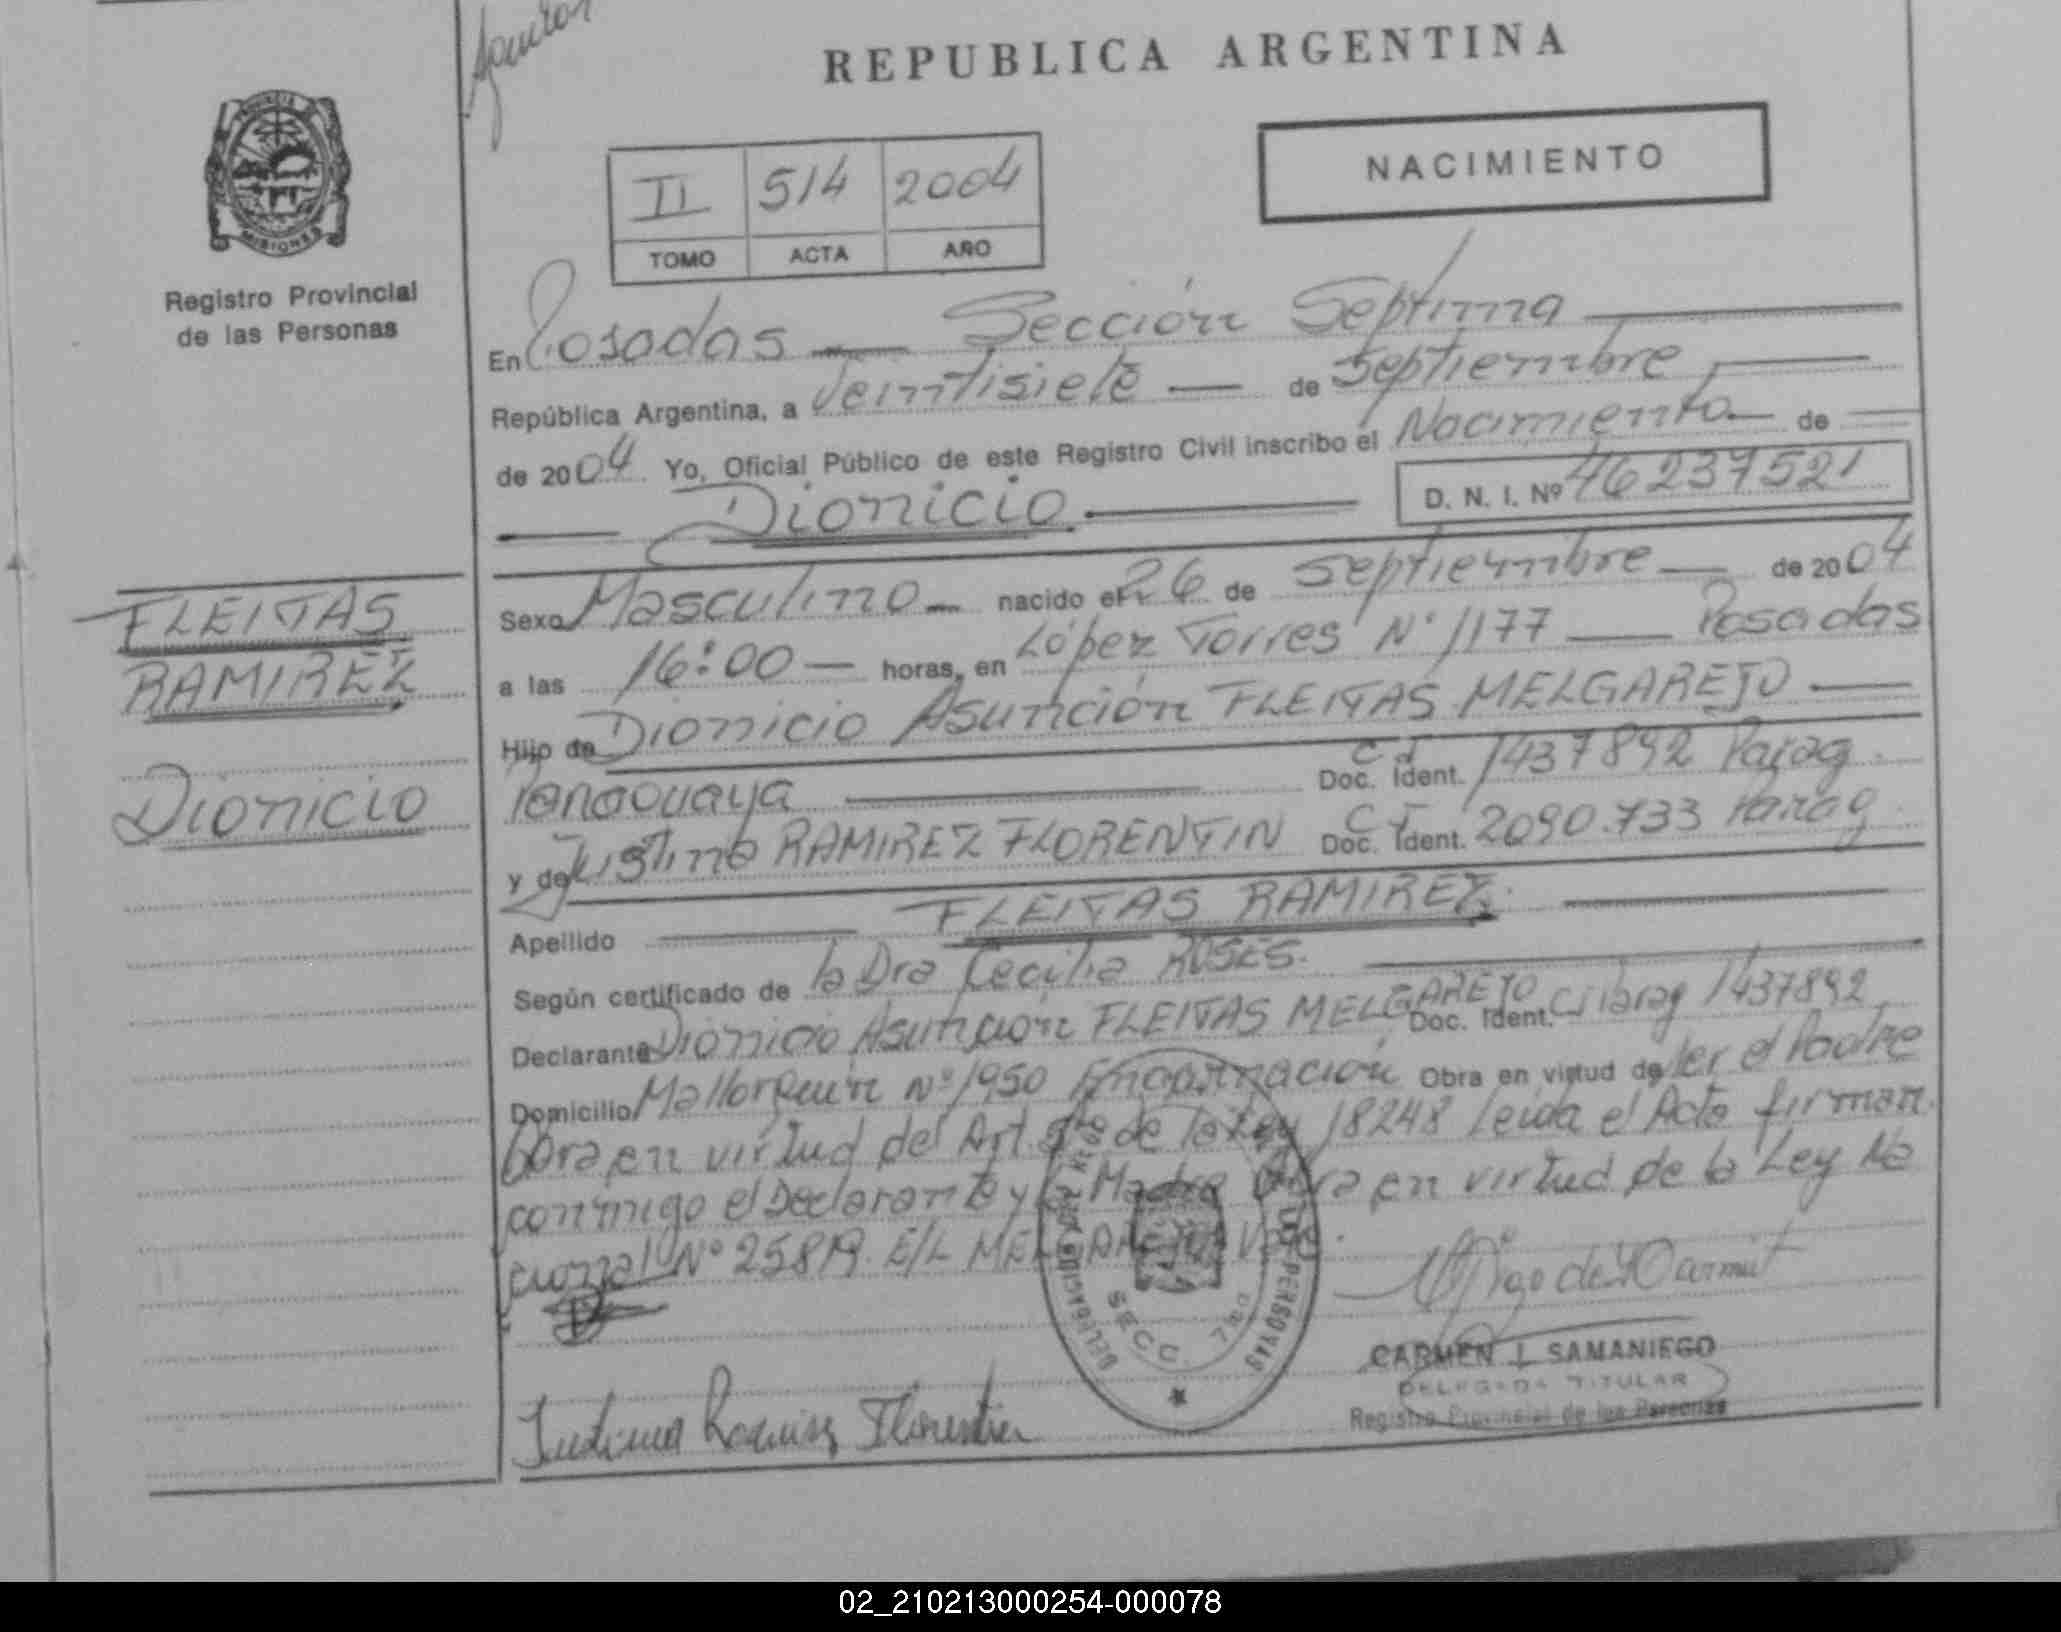 REPUBLICA ARGENTINA
PROVINCIA DE
MISIONES
Registro Provincial
de las Personas
NACIMIENTO
II 514 2004
TOMO ACTA AÑO
En Posadas — Sección Septima
República Argentina, a Veintisiete — de Septiembre
de 2004. Yo, Oficial Público de este Registro Civil inscribo el Nacimiento — de
Dionicio
D. N. I. Nº 46237521
FLEITAS
RAMIREZ
Dionicio
Sexo Masculino — nacido el 26 de Septiembre — de 2004
a las 16:00 — horas, en López Torres Nº 1177 — Posadas
Hijo de Dionicio Asunción FLEITAS MELGAREJO —
C I
Doc. Ident. 1437892 Parag.
y de Justina RAMIREZ FLORENTIN C I Doc. Ident. 2090.733 Parag.
Apellido — FLEITAS RAMIREZ.
Según certificado de la Dra Cecilia ROSES.
Declarante Dionicio Asunción FLEITAS MELGAREJO Doc. Ident. CI Parag 1437892
Domicilio Mallorquín Nº 1950 Encarnación Obra en virtud de ser el Padre
Obra en virtud del Art. de la Ley 18248 leida el Acta firman
conmigo el Declarante y la Madre Obra en virtud de la Ley Na
cional Nº 25819. E/L MELGAREJO V
DELEGACION
DE LAS PERSONAS
SECC. 7ma
Justina Ramirez Florentin
CARMEN I. SAMANIEGO
DELEGADA TITULAR
Registro Provincial de las Personas
02_210213000254-000078